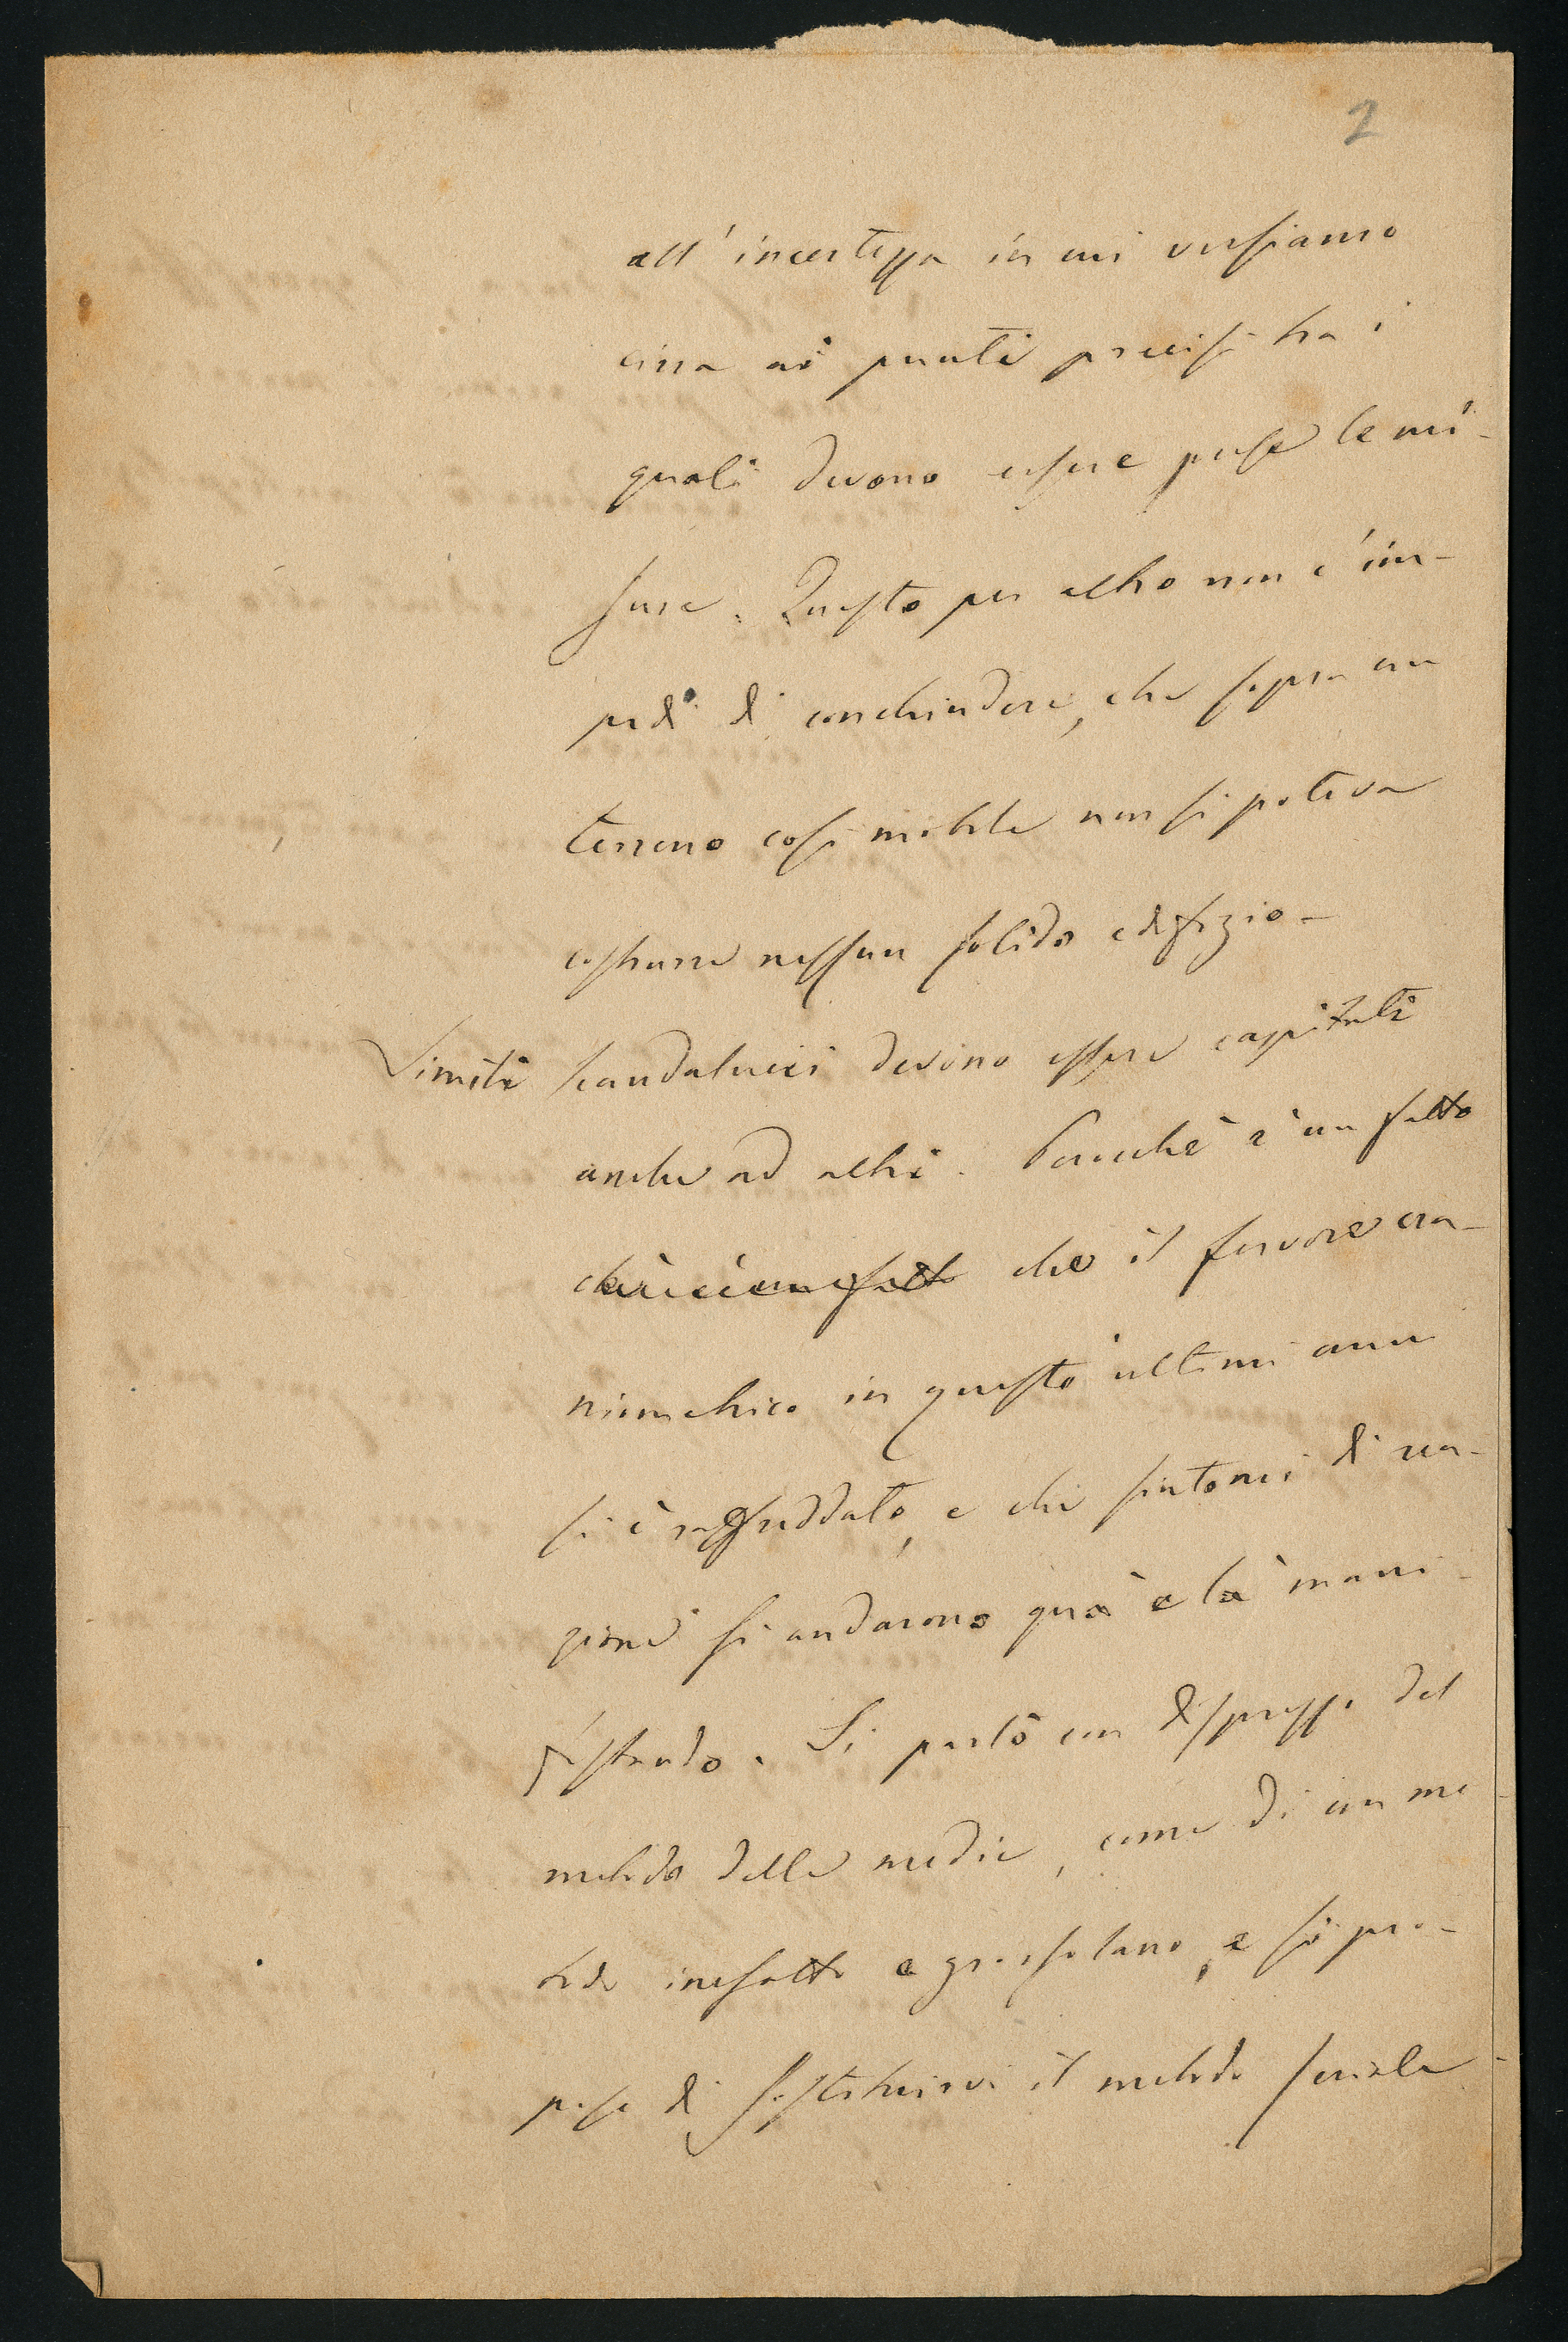 2
all'incertezza in cui versiamo
circa ai punti precisi tra i
quali devono essere prese le mi-
sure. Questo per altro non c'im-
pedì di conchiudere, che sopra un
terreno così mobile non si poteva
costrurre nessun solido edifizio-
Simili scandalucci devono essere capitati
anche ad altri. Perocchè è un fatto
che il fervore cra-
niometrico in questi ultimi anni
si è raffreddato, e che sintomi di rea-
zione si andarono quà e là mani-
festando. Si parlò con disprezzo del
metodo delle medie, come di un me
todo inesatto e grossolano, e si pro-
pose di sostituirvi il metodo seriale